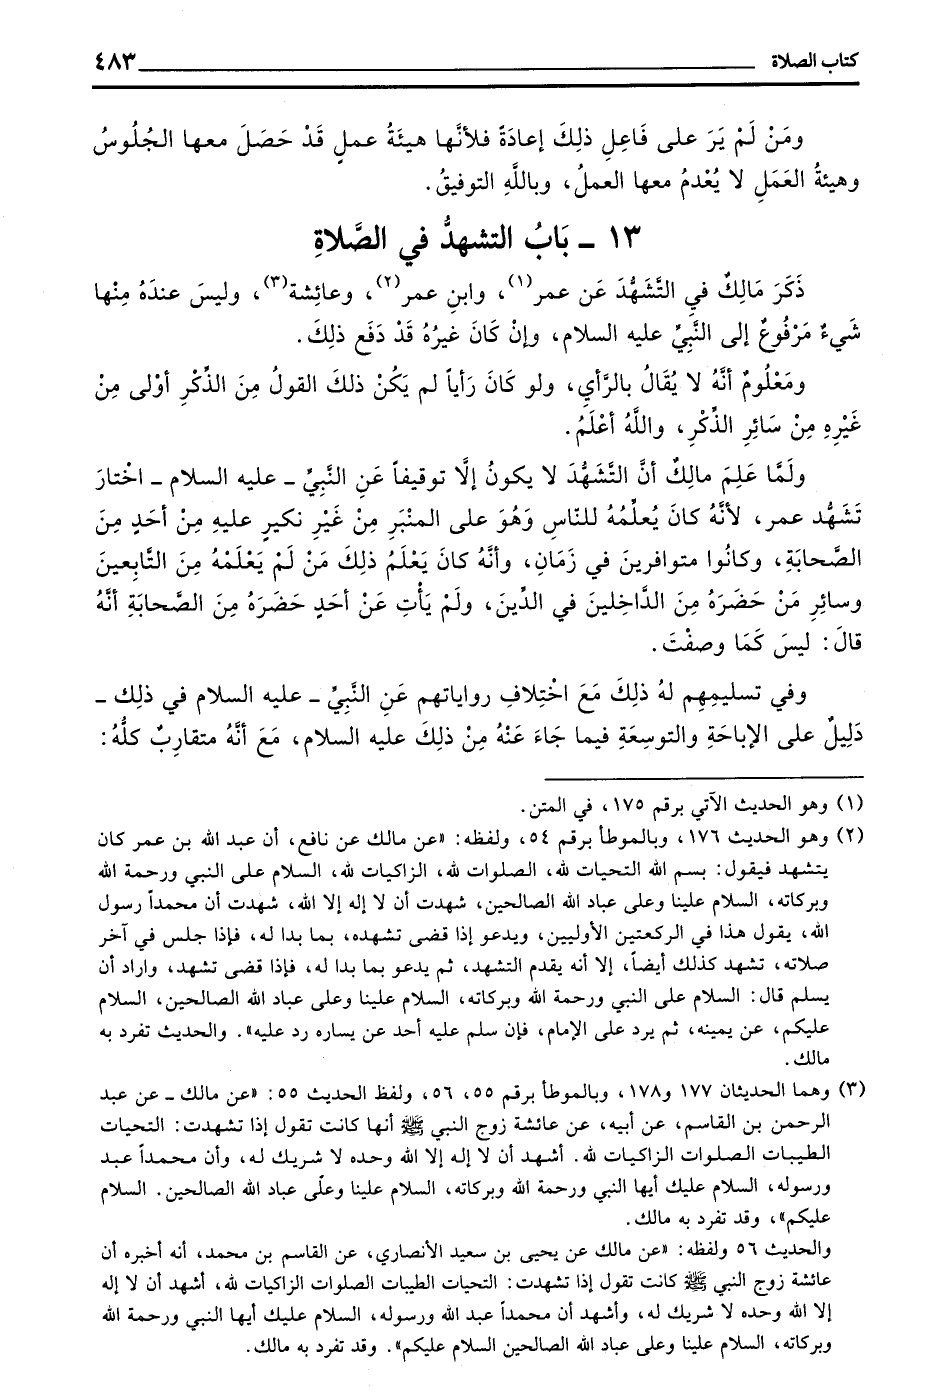 كتاب الصلاة ٤٨٣
ومَنْ لَمْ يَرَ على فَاعِلِ ذلِكَ إعادَةً فلأنَّها هيئَةُ عملٍ قَدْ حَصَلَ معها الجُلُوسُ
وهيئةُ العَمَلِ لا يُعْدمُ معها العملُ، وباللَّهِ التوفيقُ.
١٣ ـ بَابُ التشهدُّ في الصَّلاةِ
ذَكَرَ مَالِكٌ في التَّشَهُّدَ عَن عمر(١)، وابنِ عمر(٢)، وعائِشة(٣)، وليسَ عندَهُ مِنْها
شَيءٌ مَرْفُوعٌ إلى النَّبِيِّ عليه السلام، وإنْ كَانَ غيرُهُ قَدْ دَفَع ذلِكَ.
ومَعْلُومٌ أنَّهُ لا يُقَالُ بالرَّأي، ولو كَانَ رَأياً لم يَكُنْ ذلكَ القولُ مِنَ الذِّكْرِ أوْلى مِنْ
غَيْرِهِ مِنْ سَائِرِ الذِّكْرِ، واللَّهُ أعْلَمُ.
ولَمَّا عَلِمَ مالِكٌ أنَّ التَّشَهُّدَ لا يكونُ إلَّا توقيفاً عَنِ النَّبِيِّ ـ عليه السلام ـ اخْتارَ
تَشَهُّد عمر، لأنَّهُ كانَ يُعلِّمُهُ للنَّاسِ وَهُوَ على المنْبَرِ مِنْ غَيْرِ نكيرٍ عليهِ مِنْ أحَدٍ مِنَ
الصَّحابَةِ، وكانُوا متوافرينَ في زَمَانِ، وأنَّهُ كانَ يَعْلَمُ ذلكَ مَنْ لَمْ يَعْلَمْهُ مِنَ التَّابِعينَ
وسائِرِ مَنْ حَضَرَهُ مِنَ الدَّاخِلينَ في الدِّينَ، ولَمْ يَأْتِ عَنْ أحَدٍ حَضَرَهُ مِنَ الصَّحابَةِ أنَّهُ
قالَ: ليسَ كَمَا وصفْتَ.
وفي تسليمِهِم لهُ ذلِكَ مَعَ اخْتِلافِ رواياتهم عَنِ النَّبِيِّ ـ عليه السلام في ذلِك ـ
دَلِيلٌ على الإباحَةِ والتوسِعَةِ فيما جَاءَ عَنْهُ مِنْ ذلِكَ عليه السلام، مَعَ أنَّهُ متقارِبٌ كلُّهُ:
(١) وهو الحديث الآتي برقم ١٧٥، في المتن.
(٢) وهو الحديث ١٧٦، وبالموطأ برقم ٥٤، ولفظه: «عن مالك عن نافع، أن عبد الله بن عمر كان
يتشهد فيقول: بسم الله التحيات لله، الصلوات لله، الزاكيات لله، السلام على النبي ورحمة الله
وبركاته، السلام علينا وعلى عباد الله الصالحين، شهدت أن لا إله إلا الله، شهدت أن محمداً رسول
الله، يقول هذا في الركعتين الأوليين، ويدعو إذا قضى تشهده، بما بدا له، فإذا جلس في آخر
صلاته، تشهد كذلك أيضاً، إلا أنه يقدم التشهد، ثم يدعو بما بدا له، فإذا قضى تشهد، واراد أن
يسلم قال: السلام على النبي ورحمة الله وبركاته، السلام علينا وعلى عباد الله الصالحين، السلام
عليكم، عن يمينه، ثم يرد على الإمام، فإن سلم عليه أحد عن يساره رد عليه». والحديث تفرد به
مالك.
(٣) وهما الحديثان ١٧٧ و١٧٨، وبالموطأ برقم ٥٥، ٥٦، ولفظ الحديث ٥٥: «عن مالك ـ عن عبد
الرحمن بن القاسم، عن أبيه، عن عائشة زوج النبي ﷺ أنها كانت تقول إذا تشهدت: التحيات
الطيبات الصلوات الزاكيات لله. أشهد أن لا إله إلا الله وحده لا شريك له، وأن محمداً عبد
ورسوله، السلام عليك أيها النبي ورحمة الله وبركاته، السلام علينا وعلّى عباد الله الصالحين. السلام
عليكم»، وقد تفرد به مالك.
والحديث ٥٦ ولفظه: «عن مالك عن يحيى بن سعيد الأنصاري، عن القاسم بن محمد، أنه أخبره أن
عائشة زوج النبي ﷺ كانت تقول إذا تشهدت: التحيات الطيبات الصلوات الزاكيات لله، أشهد أن لا إله
إلا الله وحده لا شريك له، وأشهد أن محمداً عبد الله ورسوله، السلام عليك أيها النبي ورحمة الله
وبركاته، السلام علينا وعلى عباد الله الصالحين السلام عليكم». وقد تفرد به مالك.